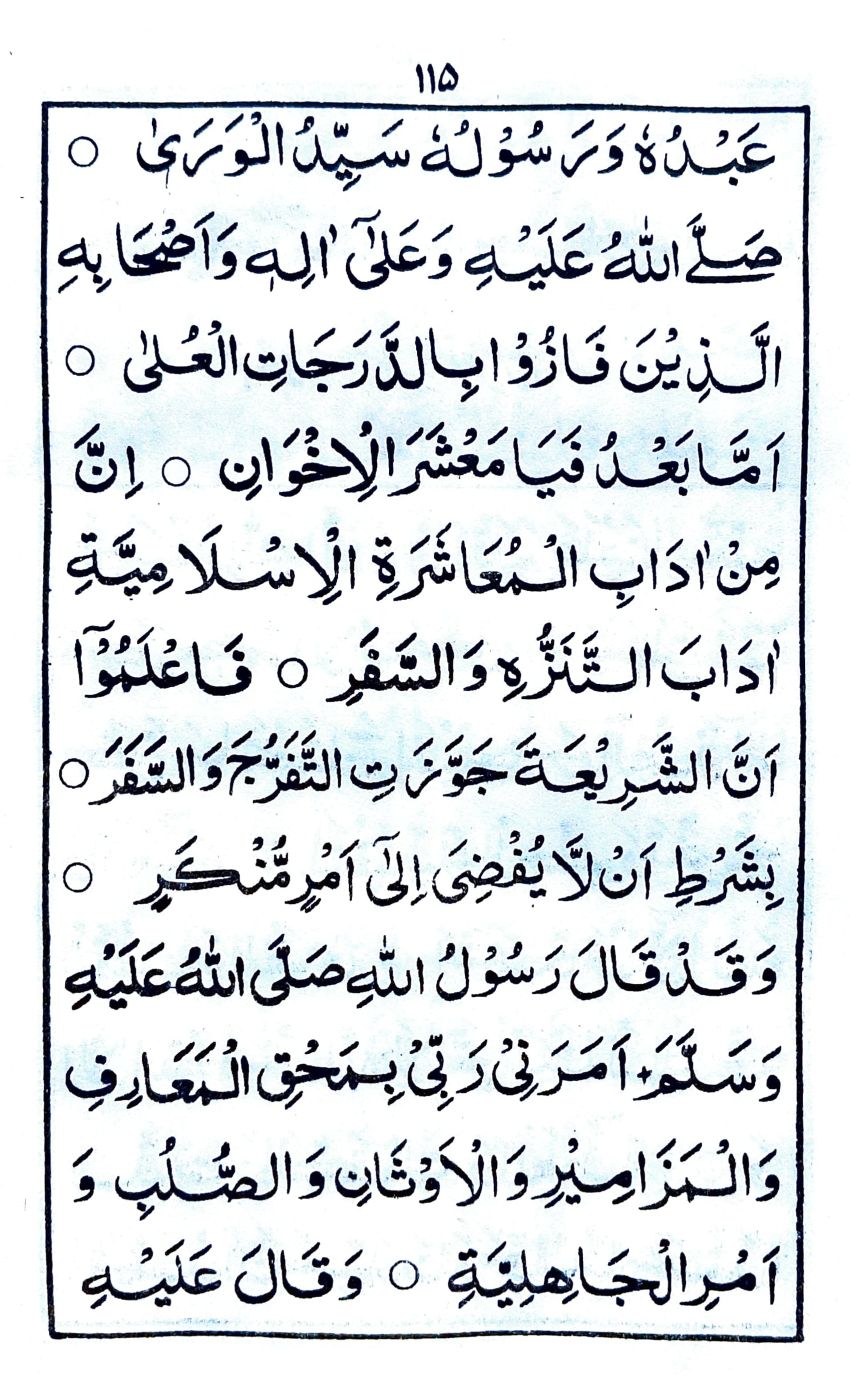 ۱۱۵
عَبْدُهٗ وَرَسُوْلُهٗ سَيِّدُ الْوَرَىٰ ○
صَلَّے اللهُ عَلَيْهِ وَعَلٰٓى اٰلِهٖ وَاَصْحَابِهِ
الَّذِيْنَ فَازُوْا بِالدَّرَجَاتِ الْعُلىٰ ○
اَمَّا بَعْدُ فَيَا مَعْشَرَ الْاِخْوَانِ ○ اِنَّ
مِنْ اٰدَابِ الْمُعَاشَرَةِ الْاِسْلَامِيَّةِ
اٰدَابَ التَّنَزُّهِ وَالسَّفَرِ ○ فَاعْلَمُوْٓا
اَنَّ الشَّرِيْعَةَ جَوَّزَتِ التَّفَرُّجَ وَالسَّفَرَ ○
بِشَرْطِ اَنْ لَّا يُفْضِىَ اِلٰٓى اَمْرٍ مُّنْكَرٍ ○
وَقَدْ قَالَ رَسُوْلُ اللهِ صَلَّى اللهُ عَلَيْهِ
وَسَلَّمَ اَمَرَنِىْ رَبِّىْ بِمَحْقِ الْمَعَارِفِ
وَالْمَزَامِيْرِ وَالْاَوْثَانِ وَالصُّلُبِ وَ
اَمْرِ الْجَاهِلِيَّةِ ○ وَقَالَ عَلَيْهِ